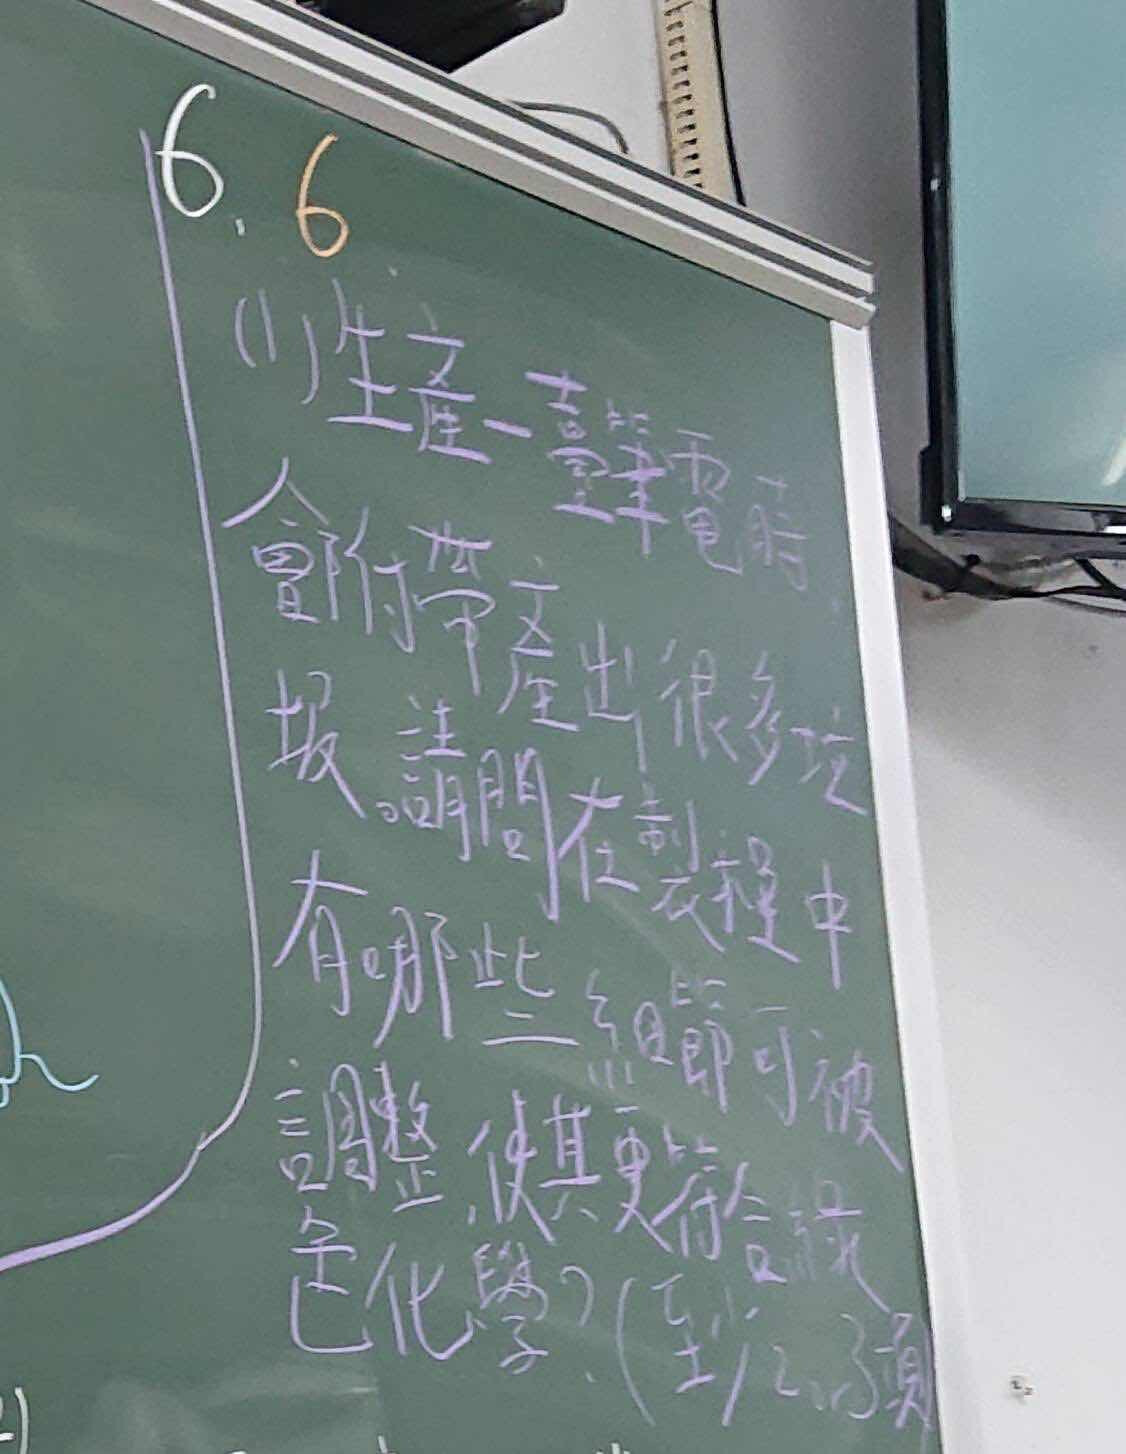 6. 6
(1)生產一臺筆電時
會附帶產出很多垃
圾。請問在製程中
有哪些細節可被
調整,使其更符合綠
色化學?(至少2、3項
2)